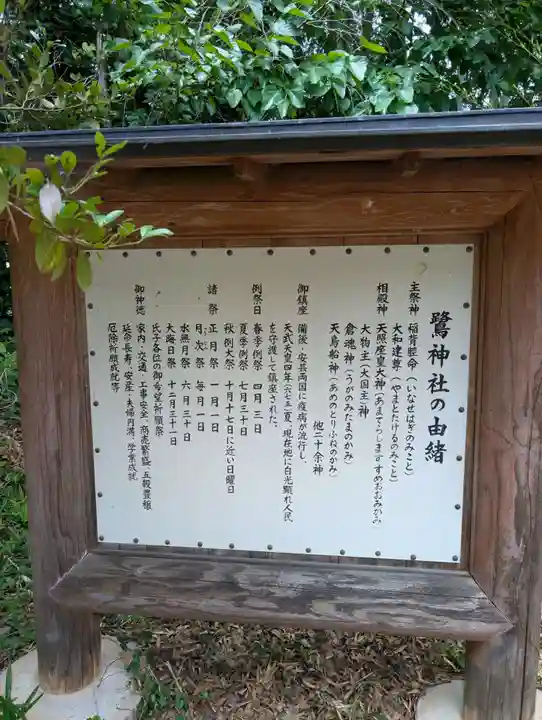 鷺神社の由緒
主祭神 稲背脛命(いなせはぎのみこと)
大和建尊(やまとたけるのみこと)
相殿神 天照座皇大神(あまてらしますすめおおみかみ)
大物主(大国主)神
倉魂神(うがのみたまのかみ)
天鳥船神(あめのとりふねのかみ)
他二十余神
御鎮座 備後・安芸両国に疫病が流行し、
天武天皇四年(六七五)夏、現在地に白光顕れ人民
を守護して鎮座された。
例祭日 春季例祭 四月三日
夏季例祭 七月三十日
秋例大祭 十月十七日に近い日曜日
諸祭 正月祭 一月一日
月次祭 毎月一日
水無月祭 六月三十日
大晦日祭 十二月三十一日
氏子各位の御希望祈願祭
御神徳 家内・交通・工事安全、商売繁盛、五穀豊穣
延命長寿、安産・夫婦円満、学業成就
厄除祈願成就等